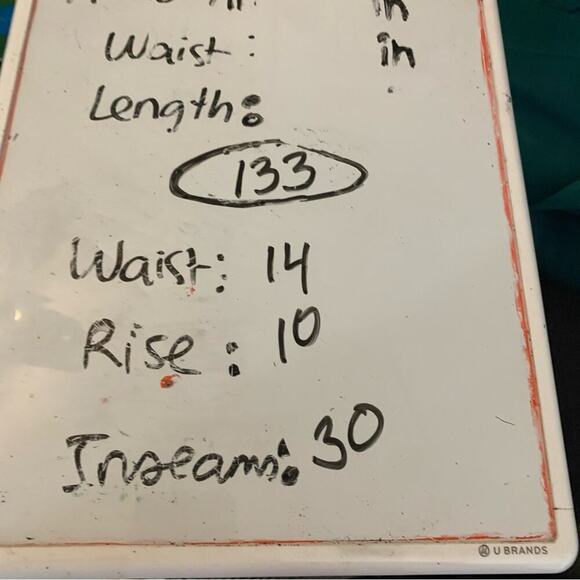 in
Waist: in
Length:
133
Waist: 14
Rise: 10
Inseam: 30
U BRANDS